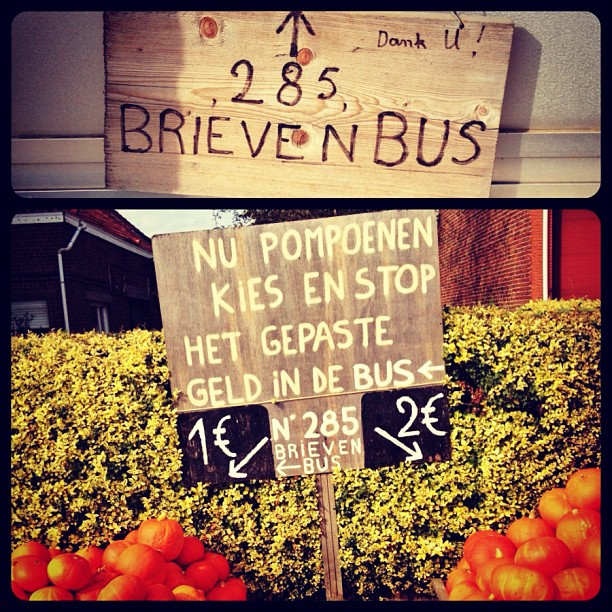 Dank U!
285
BRIEVENBUS
NU POMPOENEN
KIES EN STOP
HET GEPASTE
GELD IN DE BUS ←
1€
N° 285
BRIEVEN
← BUS
2€